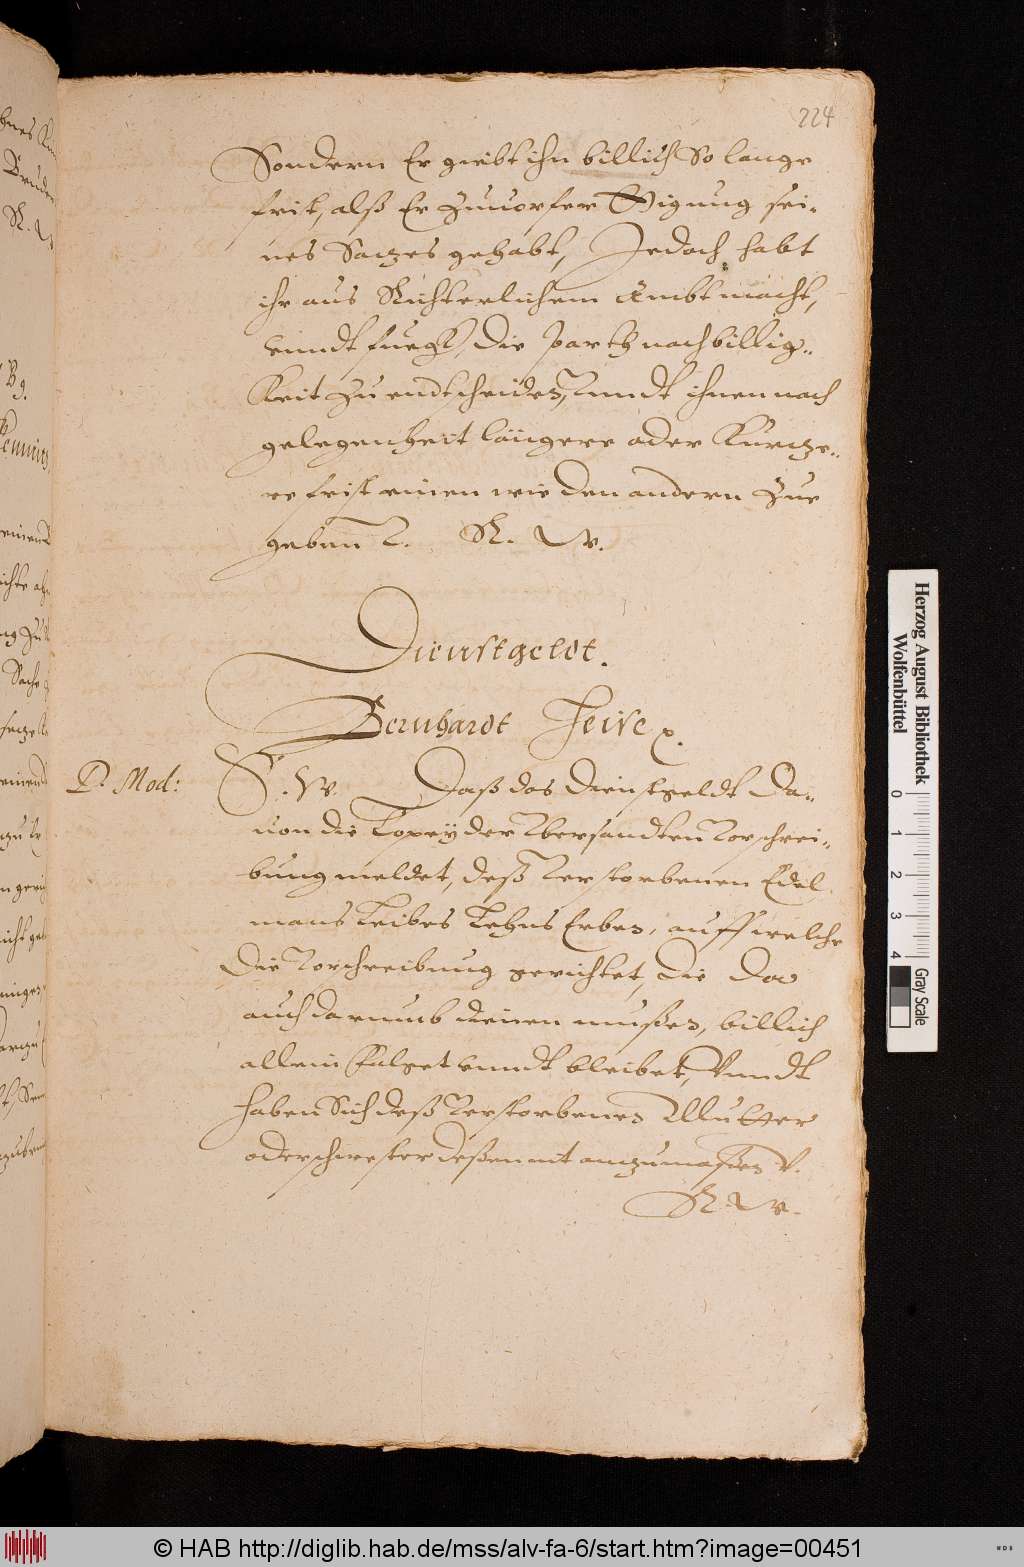 224
Sondern Er giebt ihn billich So lange
frist, alß Er zuuor
nes Satzes gehabt, Jedoch habt
ihr aus Richterlichem Ambt macht,
vnndt fueg, die Parth nach billig-
keit zu endtscheiden, Vnndt ihnen nach
gelegenheit längere oder kürtze-
re frist einen wie den andern zue
geben V. R. W.
Dienstgeldt.
Bernhardt
D. Mod:
P. W. Daß das dienstgeldt da-
uon die Copey der Vbersandten Vorschrei-
bung meldet, deß Verstorbenen Edel
mans Leibes Lehns Erben, auff welche
die Vorschreibung gerichtet, die da
auch darumb dienen mußen, billich
allein folget vnndt bleibet, Vnndt
haben Sich deß Verstorbenen Mutter
oder schwester deßen nit anzumaßen V.
R. W.
Herzog August Bibliothek
Wolfenbüttel
0 1 2 3 4
Gray Scale
© HAB http://diglib.hab.de/mss/alv-fa-6/start.htm?image=00451